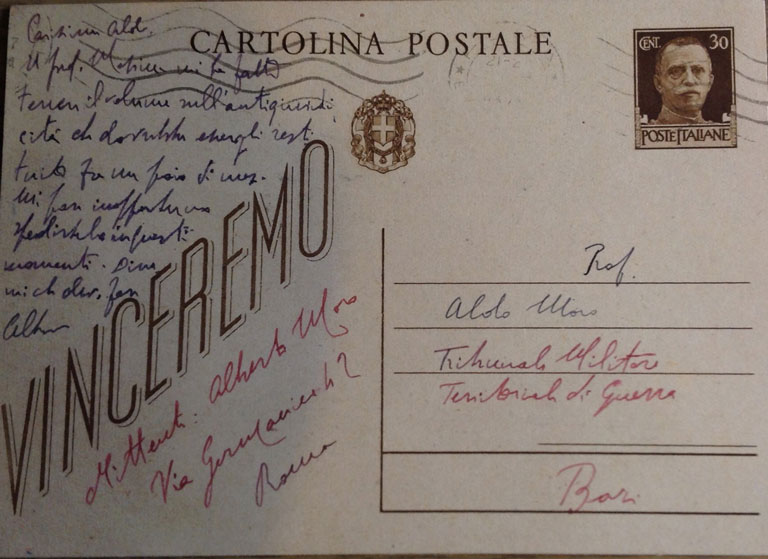 CARTOLINA POSTALE
CENT. 30
POSTE ITALIANE
Carissimo Aldo,
il prof. mi ha fatto
il volume sull'antigiuridi
cità che dovrebbe essergli resti
tuito fra un paio di mesi.
Mi par inopportuno
spedirtelo in questi
momenti. Dim
mi che devo far
Alberto
VINCEREMO
Mittente: Alberto Moro
Via Germanico 42
Roma
Prof.
Aldo Moro
Tribunale Militare
Territoriale di Guerra
Bari